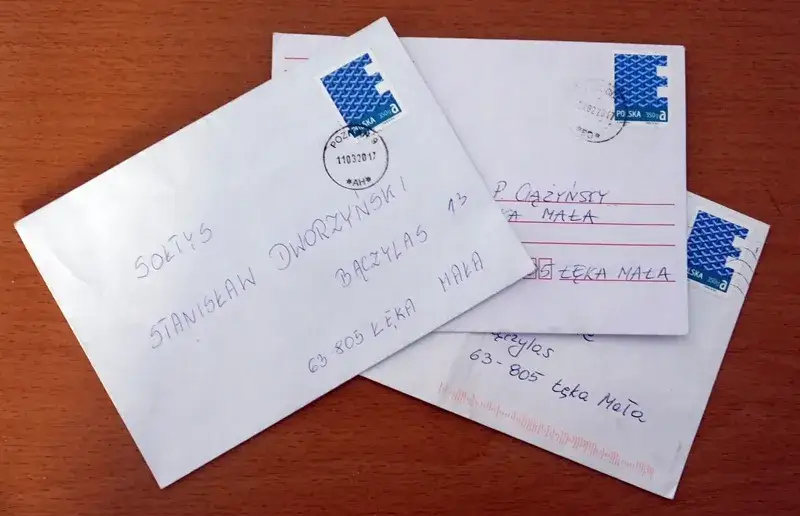 POLSKA 350g a
POZNAŃ
11032017
*AH*
SOŁTYS
STANISŁAW DWORZYŃSKI
BĄCZYLAS 13
63-805 ŁĘKA MAŁA
POLSKA 350g a
P CIĄŻYŃSCY
KA MAŁA
5 ŁĘKA MAŁA
POLSKA 350g a
ączylas
63-805 Łęka Mała